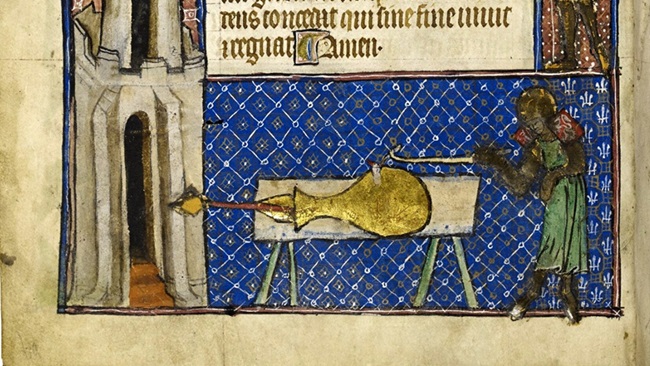 tens concedit qui sine fine uiuit
⁊ regnat Amen.